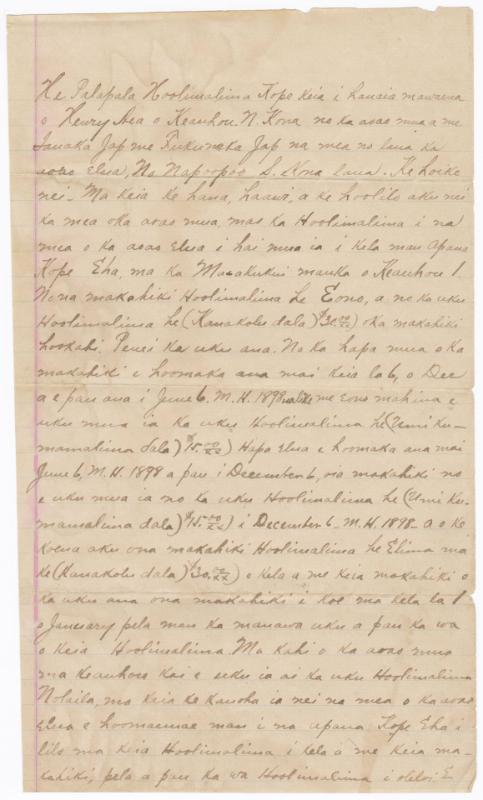 He Palapala Hoolimalima Kope keia i hanaia mawaena
o Henry Aea o Keauhou N. Kona no ka aoao mua a me
Tanaka Jap me Fukunaka Jap na mea no laua ka
aoao elua, No Napoopoo S. Kona laua. Ke hoike
nei. Ma keia ke hana, haawi, a ke hoolilo aku nei
ka mea oka aoao mua, mas ka Hoolimalima i na
mea o ka aoao elua i hai mua ia i kela mau apana
Kope Eha, ma ka mauka o Keauhou 1.
Nona makahiki Hoolimalima he Eono, a no ka uku
Hoolimalima he (Kanakolu dala) $30.00/xx) oka makahiki
hookahi. Penei ka uku ana. No ka hapa mua o ka
makahiki e hoomaka ana mai keia la 6, o Dec
a e pau ana i June 6. M.H. 1898 me eono mahina e
uku mua ia ka uku Hoolimalima he (Umi ku-
mamalima dala) $15.00/xx) Hapa elua e hoomaka ana mai
June 6, M.H. 1898 a pau i December 6, oia makahiki no
e uku mua ia no ka uku Hoolimalima he (Umi ku-
mamalima dala) $15.00/xx) i December 6. M.H. 1898. a o ke
koena aku ona makahiki Hoolimalima he Elima ma
ke (Kanakolu dala) $30.00/xx) o kela a me keia makahiki o
ka uku ana ona makahiki i koe ma kela la 1
o January pela mau ka manawa uku a pau ka wa
o keia Hoolimalima. Ma kahi o ka aoao mua
ma Keauhou kai e uku ia ai ka uku Hoolimalima
Nolaila, ma keia ke kauoha ia nei na mea o ka aoao
elua e hoomaemae mau i na apana Kope Eha i
lilo ma keia Hoolimalima i kela a me keia ma-
kahiki, pela a pau ka wa Hoolimalima i oleloia. E